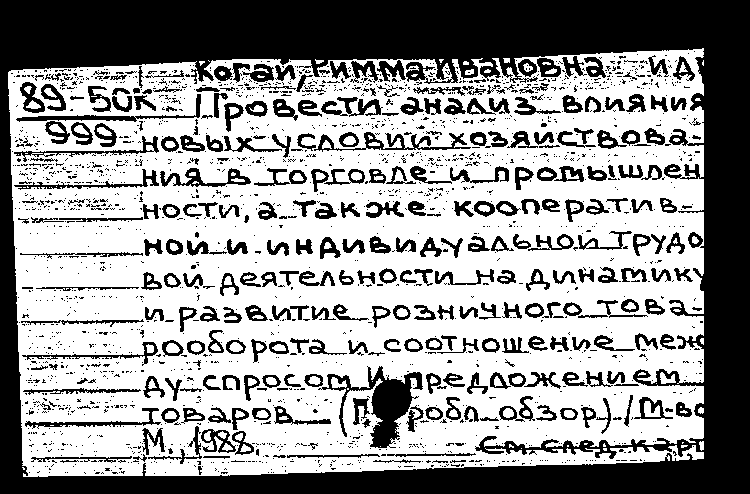 Когай, Римма Ивановна и др
89-50к
999
Провести анализ влияния
новых условий хозяйствова-
ния в торговле и промышлен
ности, а также кооператив-
ной и индивидуальной трудо
вой деятельности на динамику
и развитие розничного това-
рооборота и соотношение меж
ду спросом и предложением
товаров. (П робл. обзор) / М-во
М., 1988.
См. след. карт